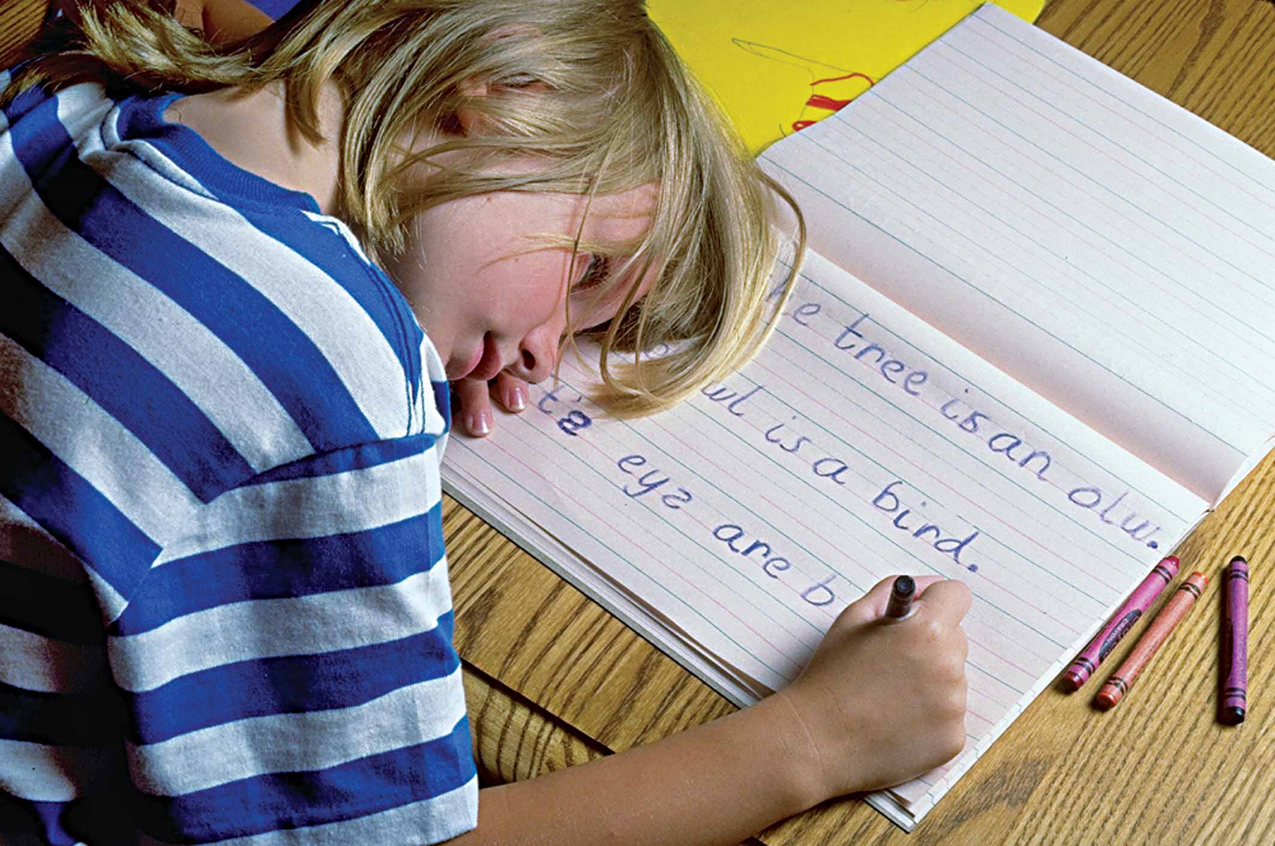 he tree is an olw.
wl is a bird.
t's eys are b